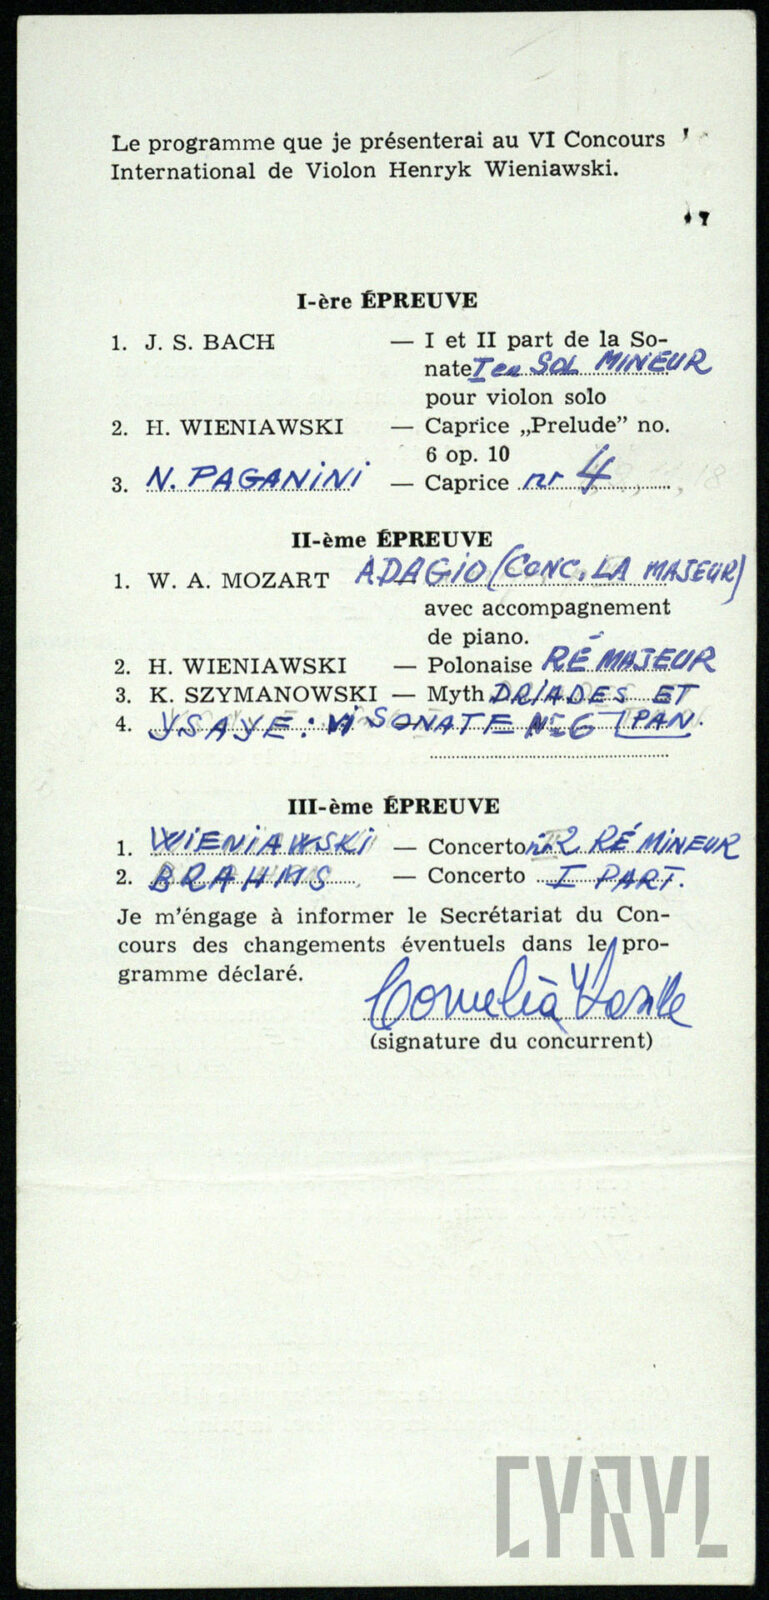 Le programme que je présenterai au VI Concours
International de Violon Henryk Wieniawski.
I-ère ÉPREUVE
1. J. S. BACH — I et II part de la So-
nate I en SOL MINEUR
pour violon solo
2. H. WIENIAWSKI — Caprice „Prelude” no.
6 op. 10
3. N. PAGANINI — Caprice nr 4
II-ème ÉPREUVE
1. W. A. MOZART — ADAGIO (CONC. LA MAJEUR)
avec accompagnement
de piano.
2. H. WIENIAWSKI — Polonaise RÉ MAJEUR
3. K. SZYMANOWSKI — Myth DRIADES ET
4. YSAYE: VI SONATE No 6 PAN.
III-ème ÉPREUVE
1. WIENIAWSKI — Concerto nr 2 RÉ MINEUR
2. BRAHMS — Concerto I PART.
Je m'éngage à informer le Secrétariat du Con-
cours des changements éventuels dans le pro-
gramme déclaré.
Cornelia Vasile
(signature du concurrent)
CYRYL